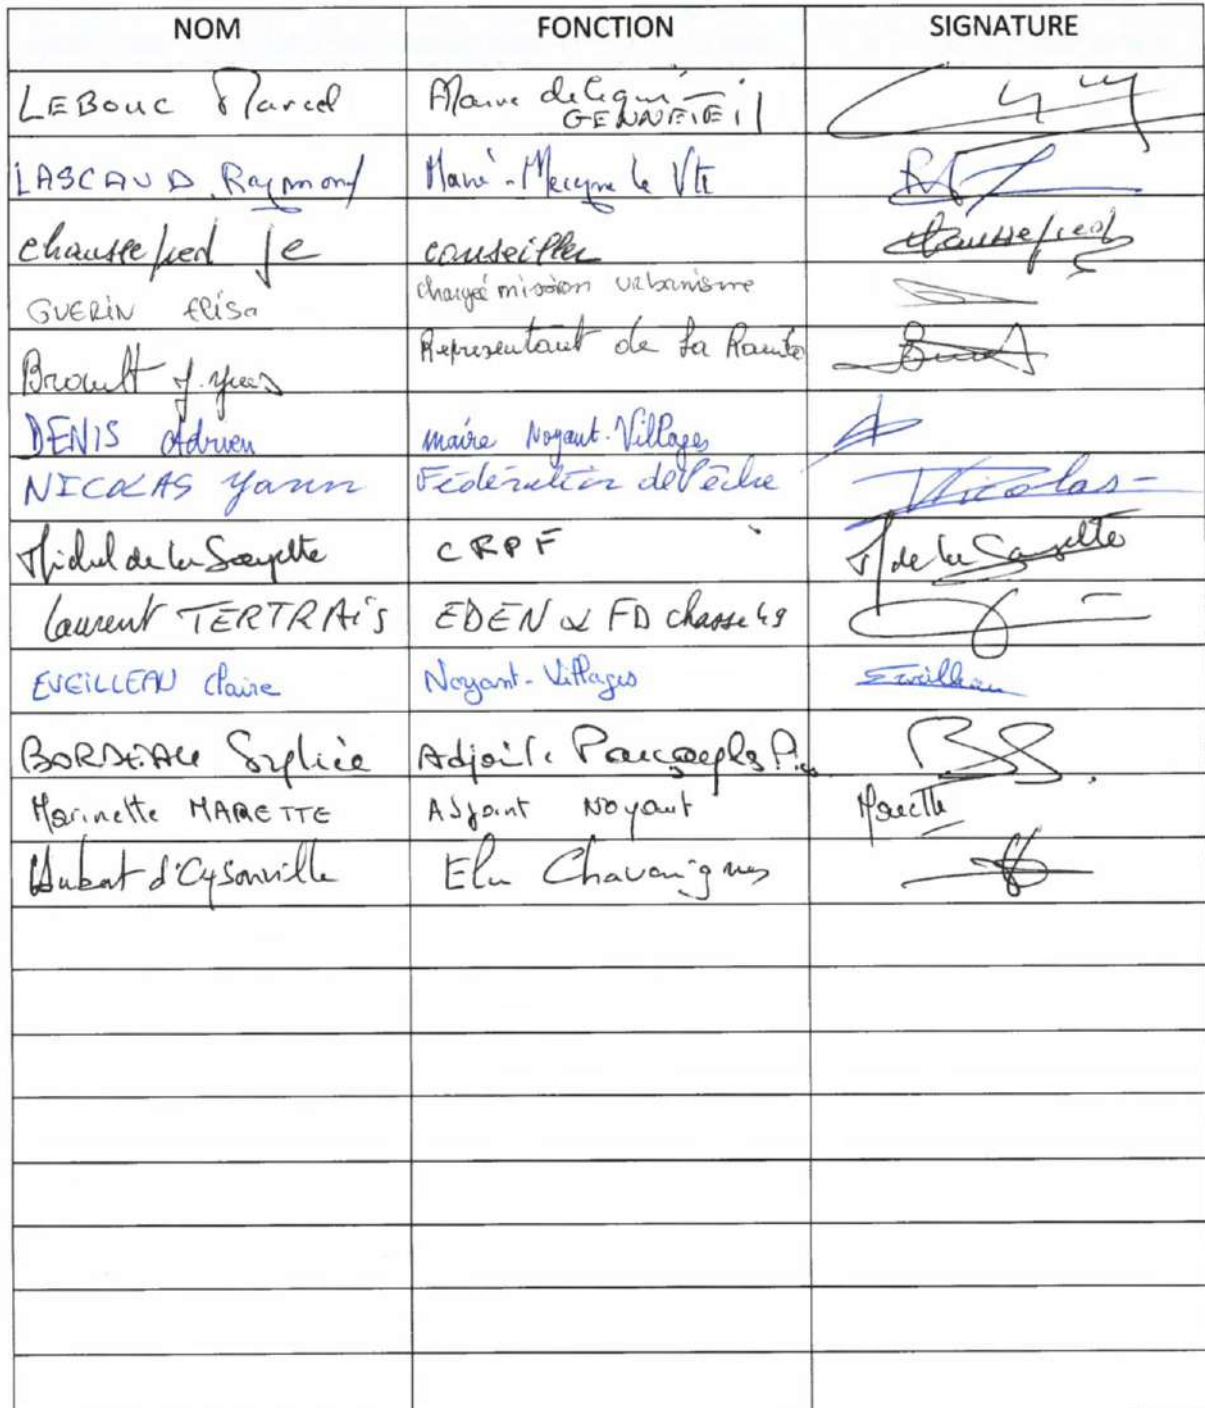 NOM FONCTION SIGNATURE
LEBOUC Marcel Maire delegué
GENNETEIL
LASCAUD Raymond Maire - Meigné le Vte
chaussepied J C conseiller Chaussepied
GUERIN Elisa chargée mission urbanisme
Brault J. Yves Representant de la
DENIS Adrien maire Noyant-Villages
NICOLAS Yann Fédération de Pêche Nicolas
Michel de la Sayette CRPF M de la Sayette
Laurent TERTRAIS EDEN & FD chasse 49
EVEILLEAU Claire Noyant-Villages Eveilleau
BORDEAU Sylvie Adjointe BS
Marinette MARETTE Adjoint Noyant Marette
Hubert d'Oysonville Elu Chavaignes